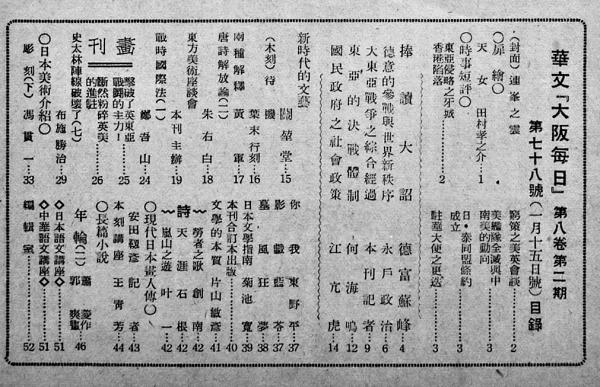 華文『大阪每日』第八卷第二期
第七十八號(一月十五日號)目錄
(封面)連峯之雲
○扉繪○
天女 田村孝之介…1
○時事短評○
東亞侵略之牙城
香港陷落……2
窮策之美英會談……2
美艦隊全滅與中
南美的動向……3
日・泰同盟條約
成立……3
駐華大使之更迭……3
捧讀大詔 德富蘇峰…4
德意的參戰與世界新秩序 永戶政治…6
大東亞戰爭之綜合經過 本刊記者…9
東亞的決戰體制 何海鳴…12
國民政府之社會政策 江亢虎…14
新時代的文藝 關菫堂…15
(木刻)待機 葉末行刻…16
兩種解釋 黃軍…17
唐詩解放論(二) 朱右白…18
東方美術座談會 本刊主辦…19
戰時國際法(二) 鄭吾山…24
畫刊
擊破了英東亞
戰鬪的主力!…25
斷然粉碎英美
的進駐……26
史太林陣線破壞了(七) 布施勝治…29
○日本美術介紹○
彫刻(下) 馮貫一…33
你我 東野平…37
影戲 藍苓…37
墓 風狂夢…38
日本文學指南 菊池寬…39
本刊合訂本出版……40
文學的本質 片山敏彥…41
詩
勞者之歌 創南…42
天涯 石根…42
嵐山之遊 叶一…42
○現代日本畫人傳○
安田靫彥記 記者…43
木刻講座 王青芳…44
○長篇小說○
年輪(二) 蕭菱作
郭爽畫…46
◇日本語文講座◇……51
◇中華語文講座◇……51
編輯室……52